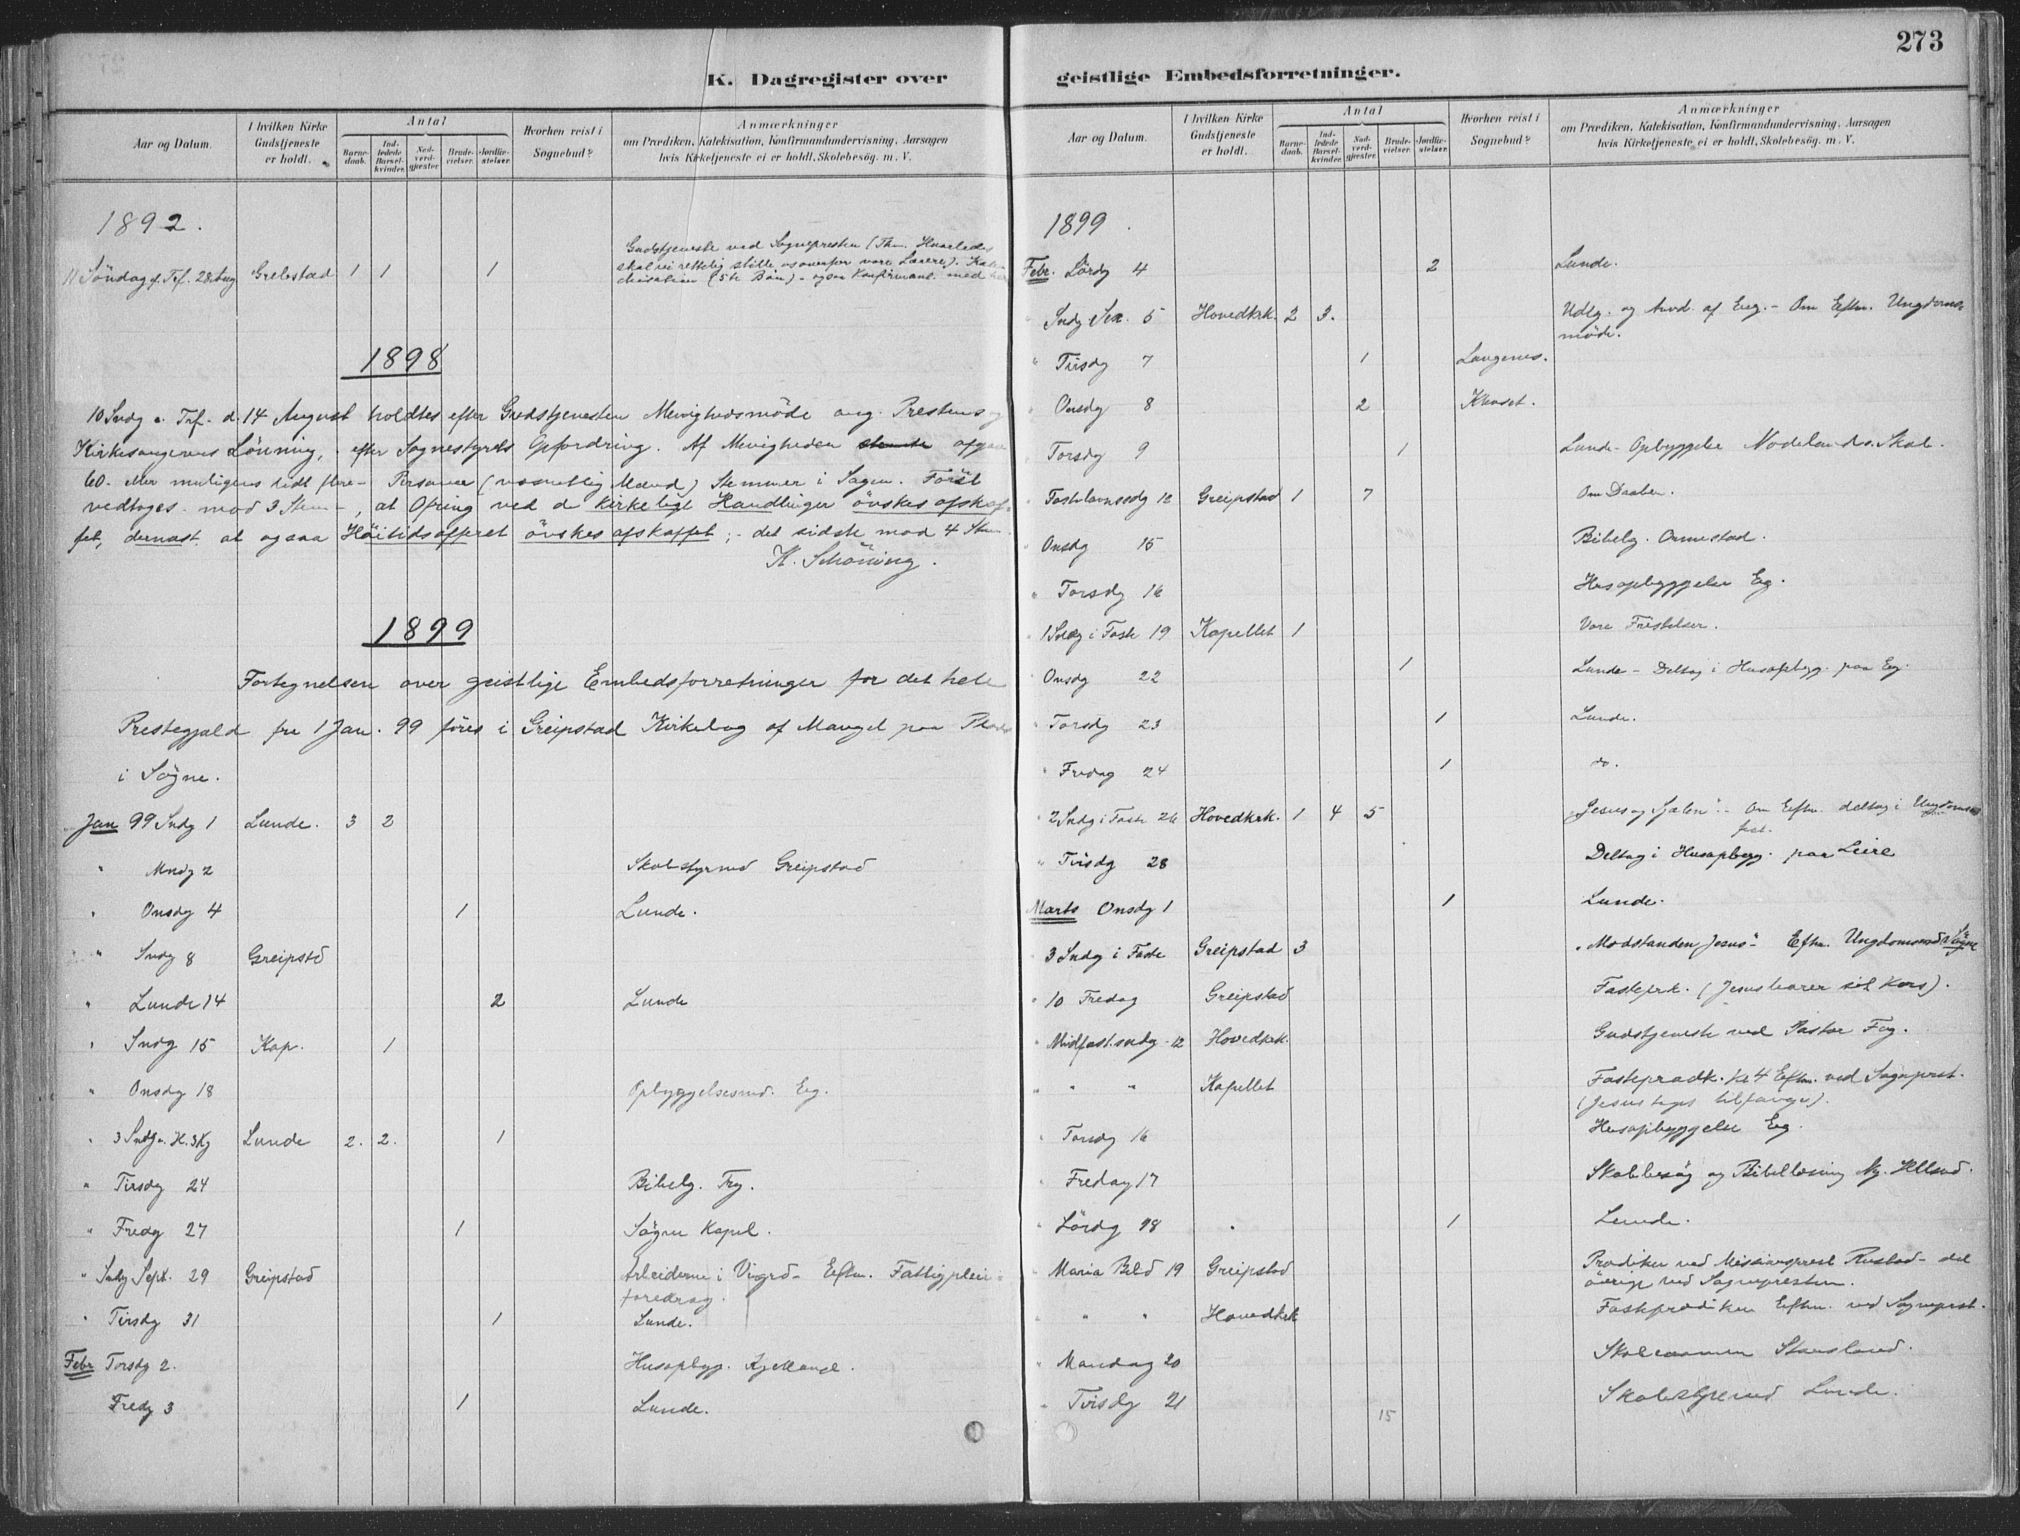 273
K. Dagregister over geistlige Embedsforretninger.
Aar og Datum. I hvilken Kirke Gudstjeneste er holdt. Antal Barnedaab. Indledede Barselkvinder. Nadverdgjester. Brudevielser. Jordfæstelser. Hvorhen reist i Sognebud? Anmærkninger om Prædiken, Katekisation, Konfirmandundervisning, Aarsagen hvis Kirketjeneste ei er holdt, Skolebesög. m. V.
1892.
Gudstjeneste ved Sognepresten (Thm. Hvorledes
11 Söndag e. Tref. 28 Aug Grebstad 1 1 1 skal vi rettelig stille os overfor vore Lærere).
(5te Bön) - ogsaa Konfirmant. med
1898
10 Sndg e. Tref. d. 14 August holdtes efter Gudstjenesten Menighedsmöde ang. Prestens og
Kirkesangerens Lönning, efter Sognestyrets Opfordring. Af Menigheden stemte afgav
60 - eller muligens lidt flere - Personer (væsentlig Mænd) Stemmer i Sagen. Först
vedtoges - mod 3 Stem -, at Ofring ved de kirkelige Handlinger önskes afskaf-
fet, dernæst at ogsaa Höitidsofferet önskes afskaffet; - det sidste mod 4 Stem.
K. Schöning.
1899
Fortegnelsen over geistlige Embedsforretninger for det hele
Prestegjæld fra 1 Jan. 99 föres i Greipstad Kirkebog af Mangel paa Plads
i Sögne.
Jan 99 Sndg 1 Lunde. 3 2
" Mndg 2 Skolestyremöd Greipstad
" Onsdg 4 1 Lunde.
" Sndg 8 Greipstd
" Lunde 14 2 Lunde
" Sndg 15 Kap. 1
" Onsdg 18 Opbyggelsesmd. Eeg.
" 3 Sndg e. H. 3 Kg Lunde 2. 2. 1
" Tirsdg 24 Bibelg. Try.
" Fredg 27 1 Sögne Kapel.
" Sndg Sept. 29 Greipstad Arbeiderne i Vingrd - Eftm. Fattigpleie-
foredrag.
" Tirsdg 31 1 Lunde.
Febr Torsdg 2. Husopbyg. Kjelland.
Fredg 3 1 Lunde.
Aar og Datum. I hvilken Kirke Gudstjeneste er holdt. Antal Barnedaab. Indledede Barselkvinder. Nadverdgjester. Brudevielser. Jordfæstelser. Hvorhen reist i Sognebud? Anmærkninger om Prædiken, Katekisation, Konfirmandundervisning, Aarsagen hvis Kirketjeneste ei er holdt, Skolebesög. m. V.
1899
Febr. Lördg 4 2 Lunde.
" Sndg Sex. 5 Hovedkrk. 2 3. Udlg. og Anvd. af Evg. - Om Eftm. Ungdoms-
möde.
" Tirsdg 7 1 Langenes.
" Onsdg 8 2 Khuset.
" Torsdg 9 1 Lunde - Opbyggelse Nodelands Skole.
" Fastelavnssdg 12 Greipstad 1 7 Om Daaben.
" Onsdg 15 Bibelg. Ormestad.
" Torsdg 16 Husopbyggelse Eeg.
" 1 Sndg i Faste 19 Kapellet 1 Vore Fristelser.
" Onsdg 22 1 Lunde - Deltog i Husopbyg. paa Eeg.
" Torsdg 23 1 Lunde.
" Fredag 24 1 do.
" 2 Sndg i Faste 26 Hovedkrk. 1 4 5 "Jesus og Sjælen" - Om Eftm. deltog i Ungdoms-
fest.
" Tirsdg 28 Deltog i Husopbyg. paa Leire
Marts Onsdg 1 1 Lunde.
" 3 Sndg i Faste Greipstad 3 "Modstanden Jesus" - Eftm. Ungdomsmöd i Sögne
" 10 Fredag Greipstad Fasteprk. (Jesus bærer sit Kors).
" Midfast.sndg. 12 Hovedkrk. Gudstjeneste ved Pastor Fog.
" " " Kapellet Fasteprædk. Kl 4 Eftm. ved Sogneprst.
(Jesus tages tilfange).
" Torsdg 16 Husopbyggelse Eeg.
" Fredag 17 Skolebesög og Bibellæsning
" Lördg 18 1 Lunde.
" Maria Bbd 19 Greipstad Prædiken ved Missionsprest Rustad - det
övrige ved Sognepresten.
" " " Hovedkrk Fasteprædiken Eftm. ved Sogneprst.
" Mandag 20 Skoleexamen
" Tirsdg 21 Skolestyremöd Lunde.
15